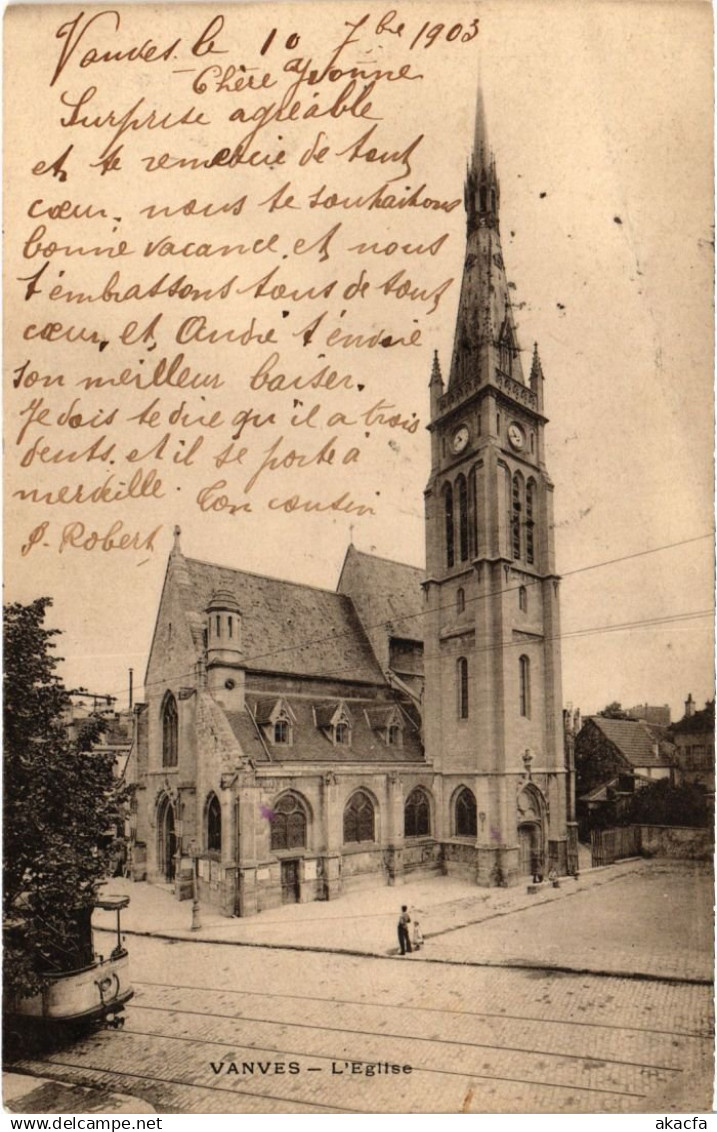 Vanves le 10 7bre 1903
Chère Yvonne
Surprise agréable
et te remercie de tout
cœur. nous te souhaitons
bonne vacance. et nous
t'embrassons tous de tout
cœur. et André t'envoie
son meilleur baiser.
Je dois te dire qu'il a trois
dents. et il se porte à
merveille. Ton cousin
Robert
VANVES – L'Eglise
akacfa
www.delcampe.net